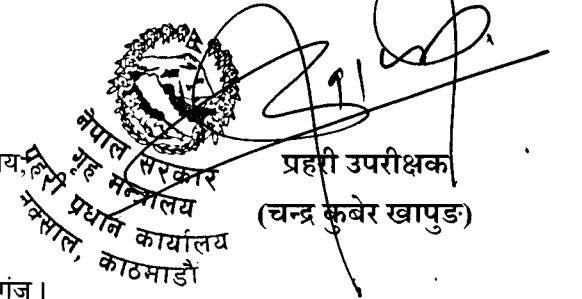 नेपाल सरकार
गृह मन्त्रालय
प्रहरी प्रधान कार्यालय
नक्साल, काठमाडौं
प्रहरी उपरीक्षक
(चन्द्र कुबेर खापुङ)